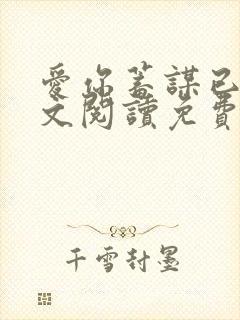 愛你蓄謀已
文閱讀免費
千雪封墨